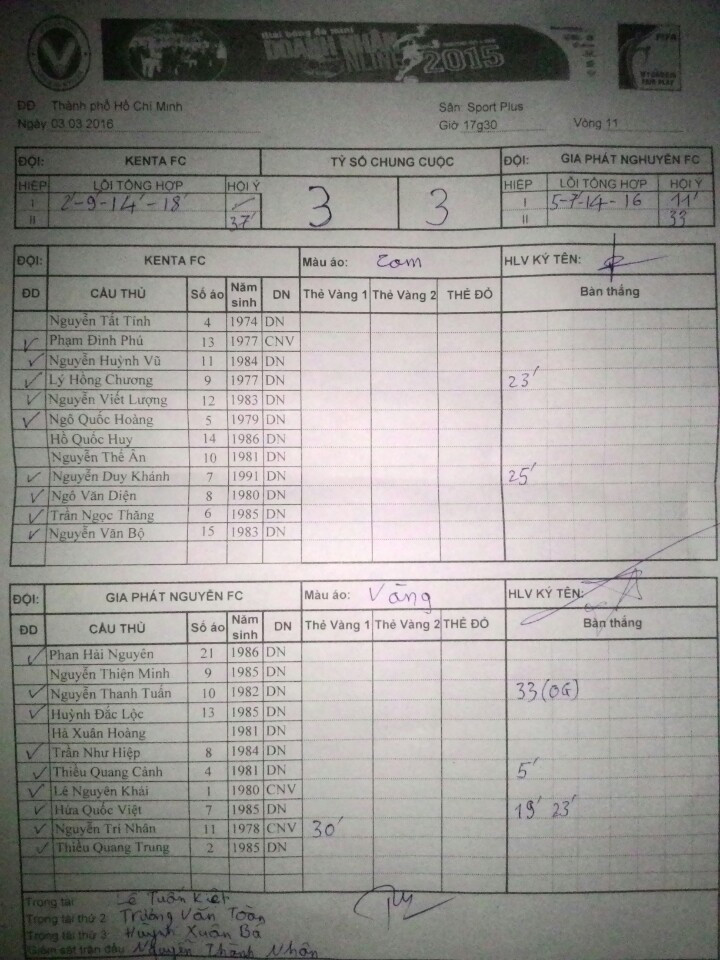 Giải bóng đá mini
DOANH NHÂN
ONLINE 2015
FIFA
ĐĐ: Thành phố Hồ Chí Minh Sân: Sport Plus
Ngày 03.03.2016 Giờ 17g30 Vòng 11
ĐỘI: KENTA FC TỶ SỐ CHUNG CUỘC ĐỘI: GIA PHÁT NGHUYÊN FC
HIỆP LỖI TỔNG HỢP HỘI Ý 3 3 HIỆP LỖI TỔNG HỢP HỘI Ý
I 2'-9-14'-18' I 5-7-14-16 11'
II 37' II 33
ĐỘI: KENTA FC Màu áo: Cam HLV KÝ TÊN:
ĐD CẦU THỦ Số áo Năm sinh DN Thẻ Vàng 1 Thẻ Vàng 2 THẺ ĐỎ Bàn thắng
Nguyễn Tất Tính 4 1974 DN
✓ Phạm Đình Phú 13 1977 CNV
✓ Nguyễn Huỳnh Vũ 11 1984 DN
✓ Lý Hồng Chương 9 1977 DN 23'
✓ Nguyễn Viết Lượng 12 1983 DN
✓ Ngô Quốc Hoàng 5 1979 DN
Hồ Quốc Huy 14 1986 DN
Nguyễn Thế Ân 10 1981 DN
✓ Nguyễn Duy Khánh 7 1991 DN 25'
✓ Ngô Văn Diện 8 1980 DN
✓ Trần Ngọc Thăng 6 1985 DN
✓ Nguyễn Văn Bộ 15 1983 DN
ĐỘI: GIA PHÁT NGUYÊN FC Màu áo: Vàng HLV KÝ TÊN:
ĐD CẦU THỦ Số áo Năm sinh DN Thẻ Vàng 1 Thẻ Vàng 2 THẺ ĐỎ Bàn thắng
✓ Phan Hải Nguyên 21 1986 DN
Nguyễn Thiện Minh 9 1985 DN
✓ Nguyễn Thanh Tuấn 10 1982 DN 33(OG)
✓ Huỳnh Đắc Lộc 13 1985 DN
Hà Xuân Hoàng 1981 DN
✓ Trần Như Hiệp 8 1984 DN
✓ Thiều Quang Cảnh 4 1981 DN 5'
✓ Lê Nguyên Khải 1 1980 CNV
✓ Hứa Quốc Việt 7 1985 DN 19' 23'
✓ Nguyễn Trí Nhân 11 1978 CNV 30'
✓ Thiều Quang Trung 2 1985 DN
Trọng tài Lê Tuấn Kiệt
Trọng tài thứ 2: Trương Văn Toàn
Trọng tài thứ 3: Huỳnh Xuân Bá
Giám sát trận đấu: Nguyễn Thành Nhân